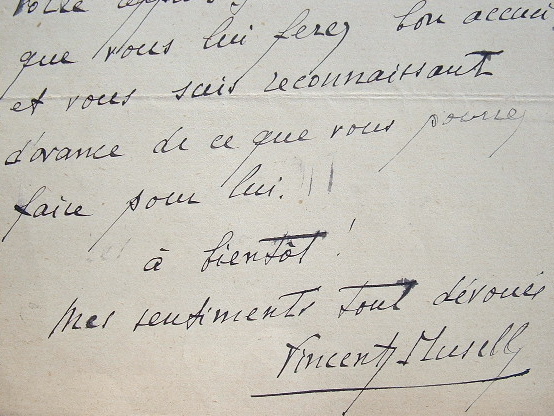 votre
que vous lui ferez bon accueil
et vous suis reconnaissant
d'avance de ce que vous pourrez
faire pour lui.
à bientôt !
Mes sentiments tout dévoués
Vincent Muselli